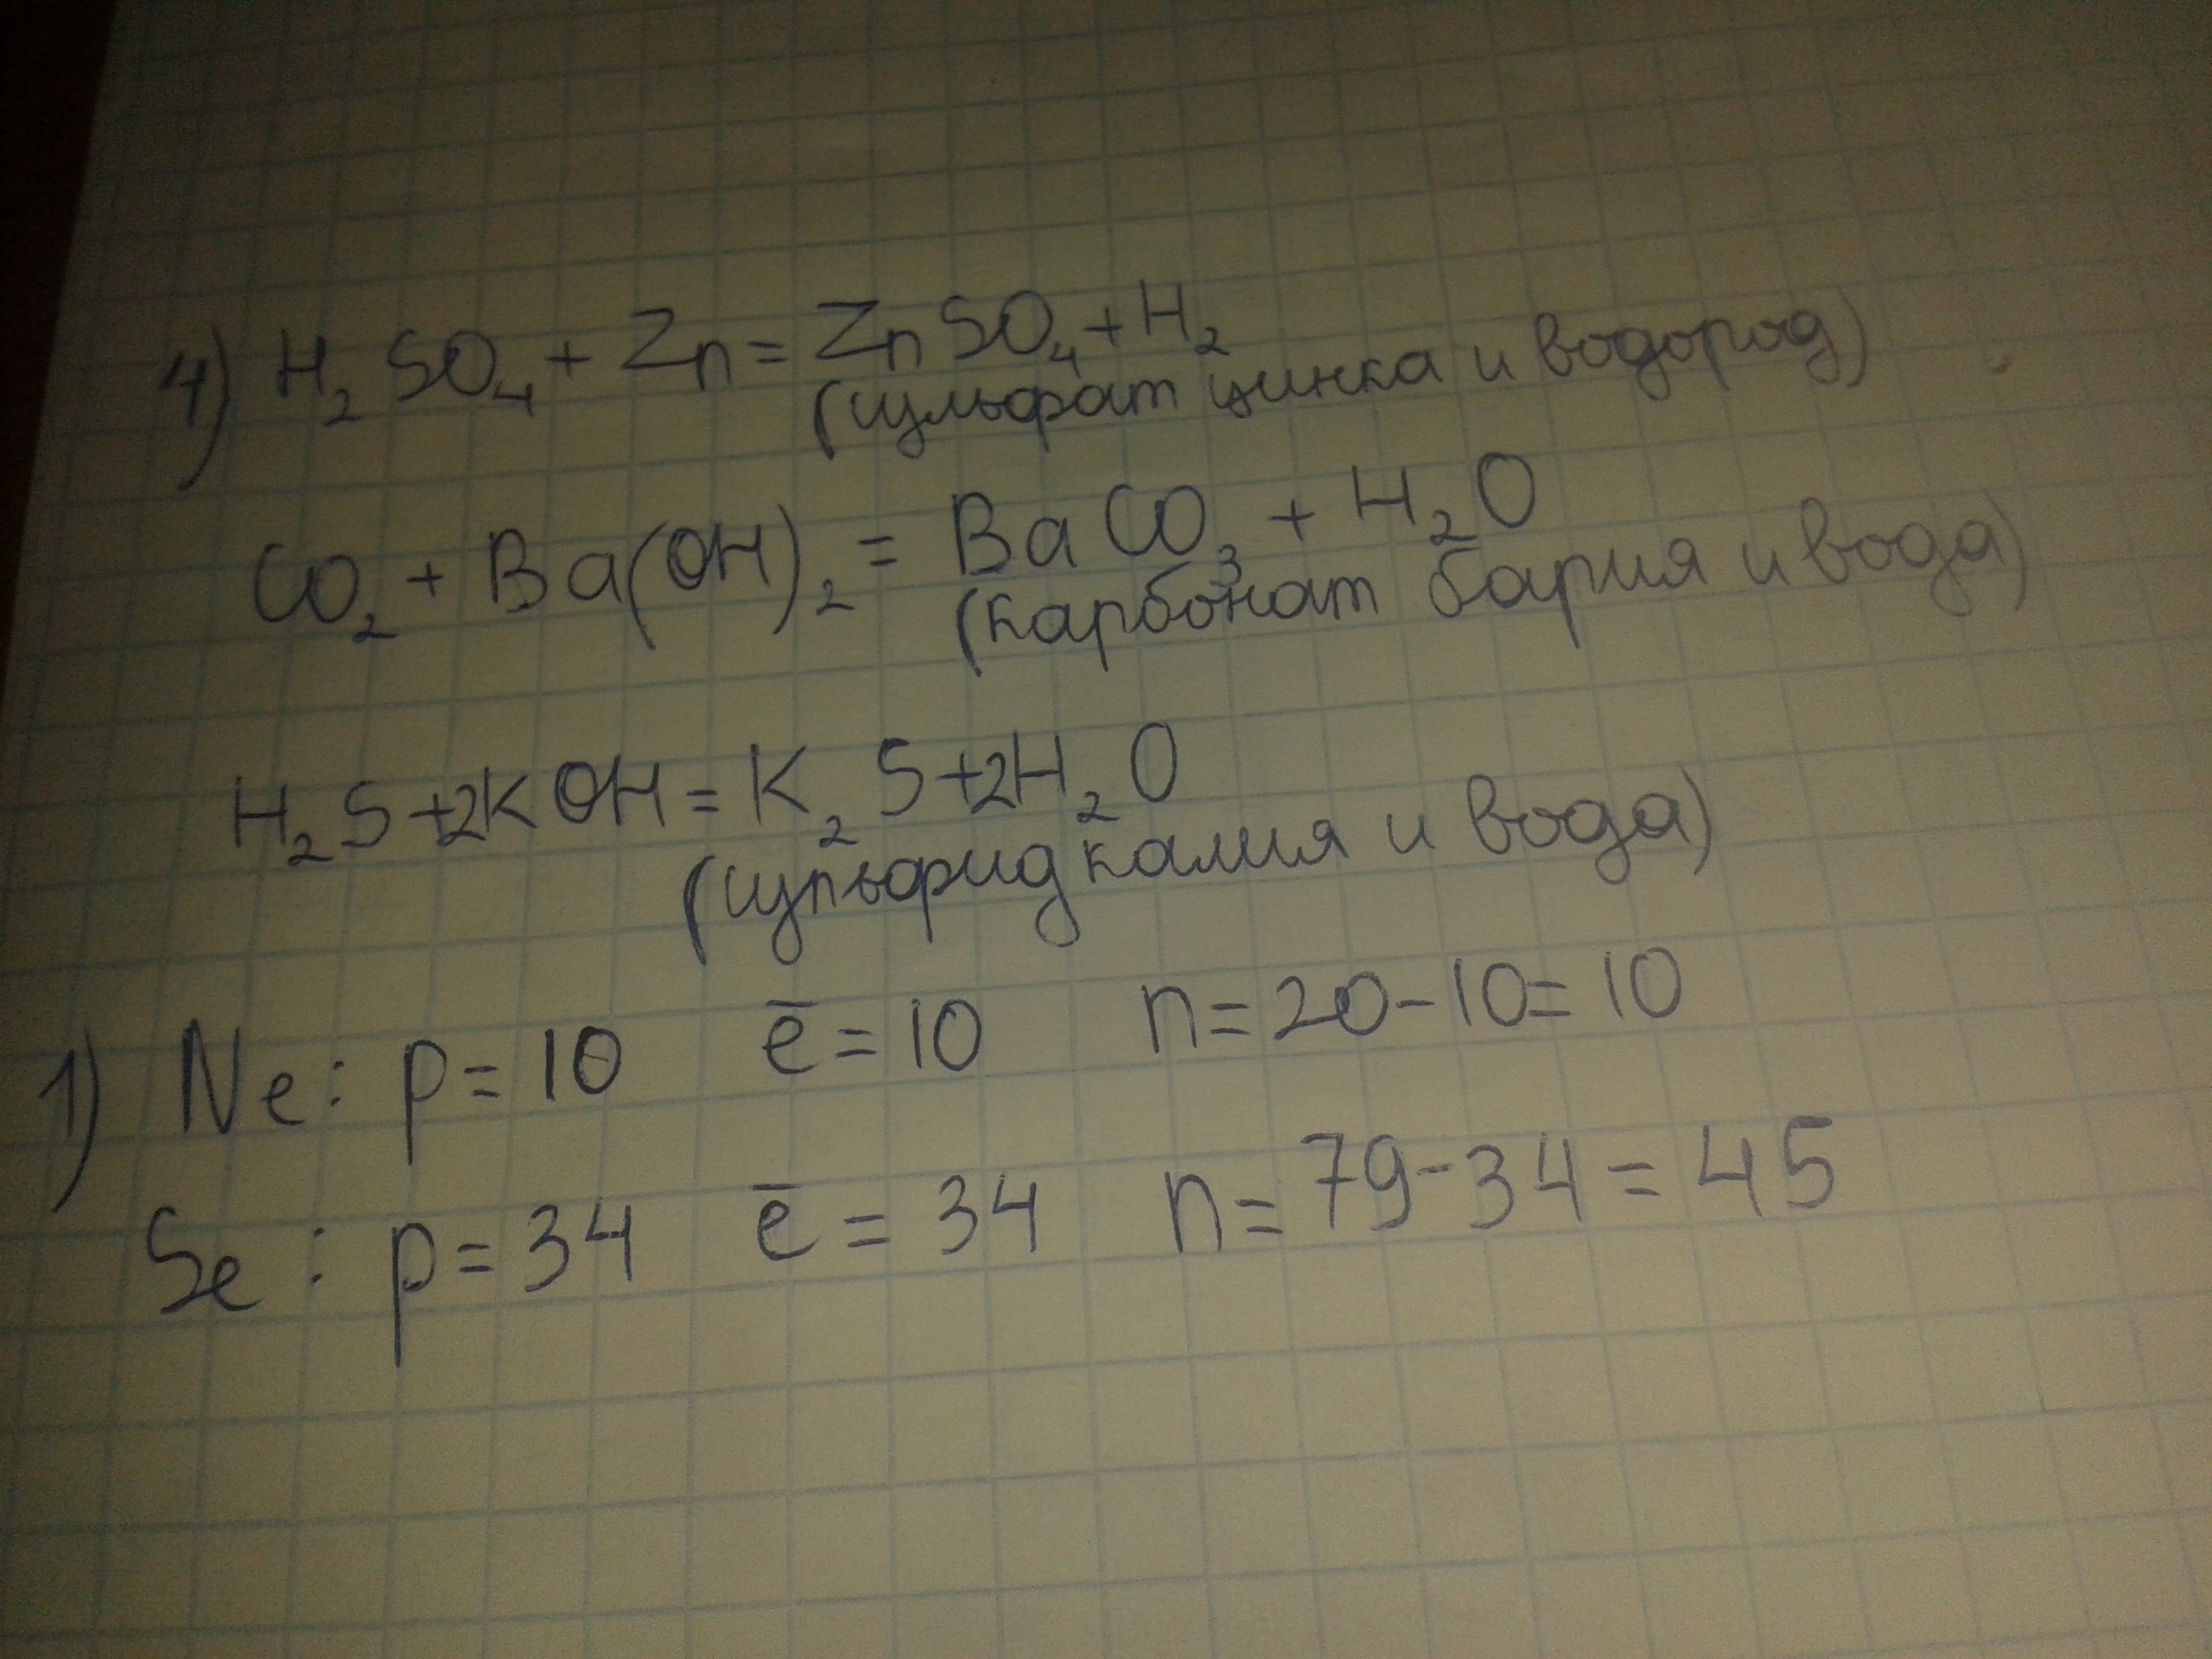 4) H₂SO₄ + Zn = ZnSO₄ + H₂
(сульфат цинка и водород)
CO₂ + Ba(OH)₂ = BaCO₃ + H₂O
(карбонат бария и вода)
H₂S + 2KOH = K₂S + 2H₂O
(сульфид калия и вода)
1) Ne: p = 10 e̅ = 10 n = 20 - 10 = 10
Se: p = 34 e̅ = 34 n = 79 - 34 = 45